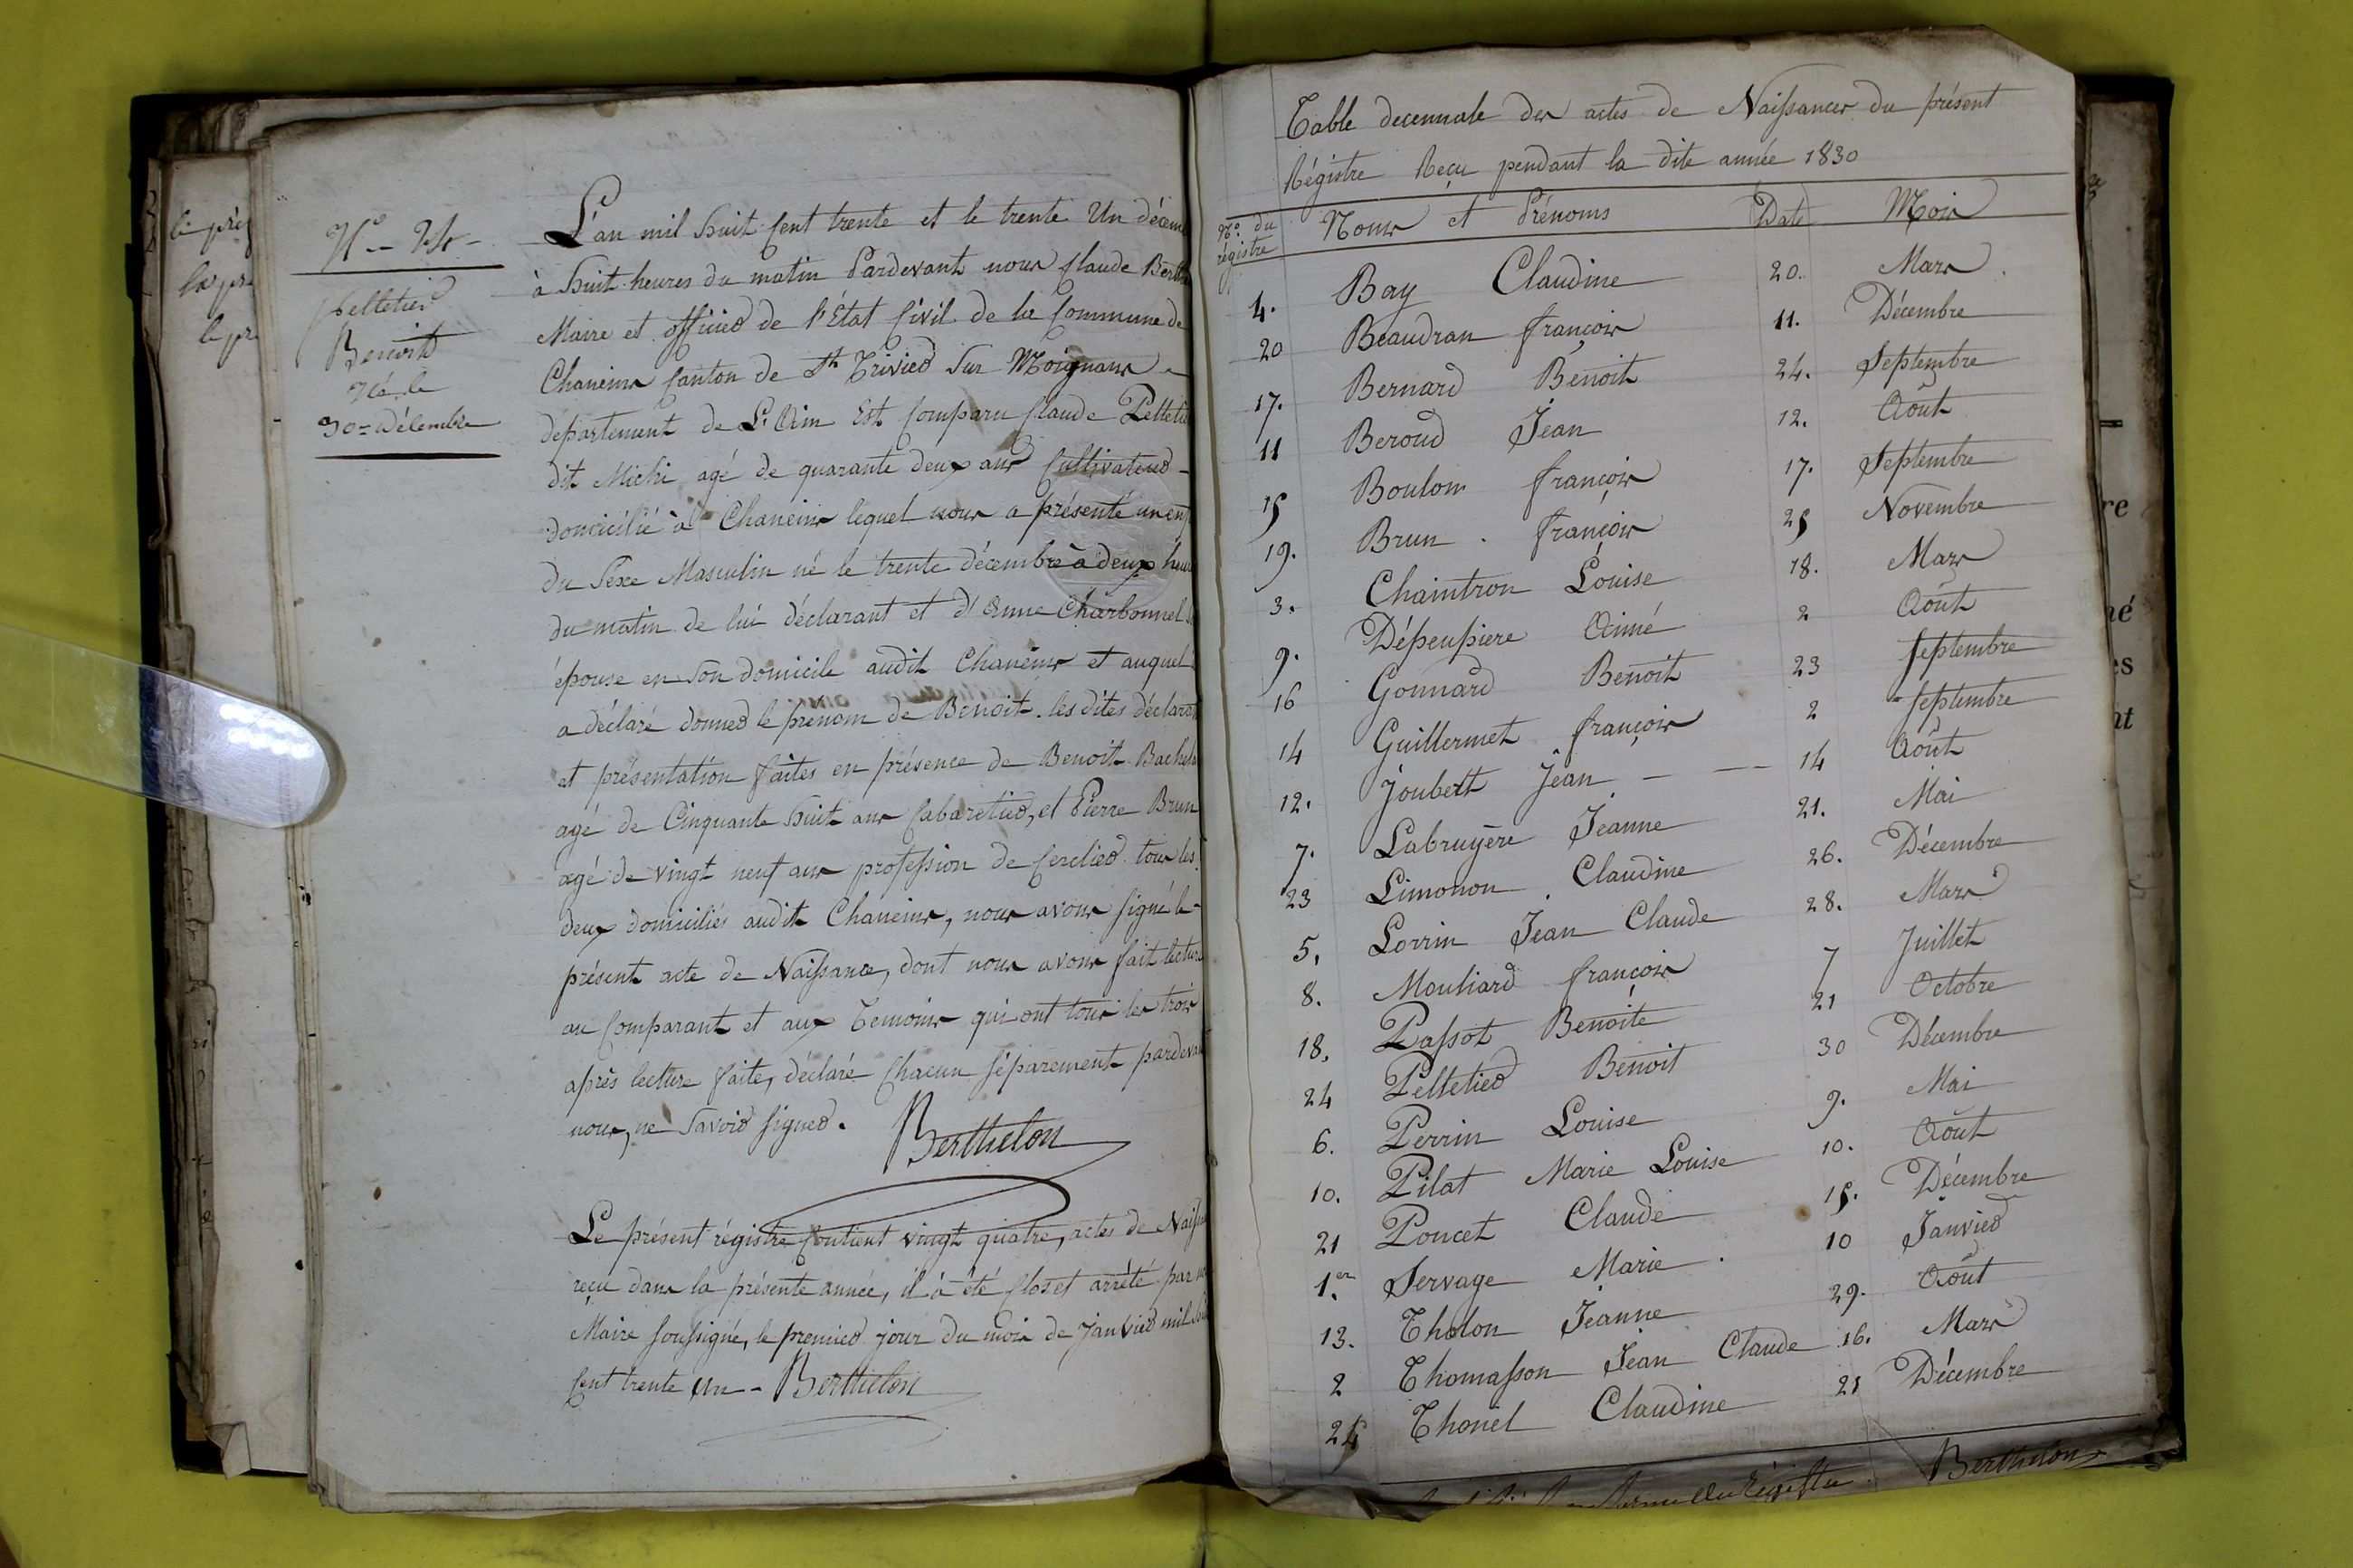 le prés
la pré
le pr
N.º 24
Pelletier
Benoit
Né le
30 = Décembre
L'an mil huit cent trente et le trente Un décem
à huit heures du matin Pardevant nous Claude Berth
Maire et officier de l'État Civil de la Commune de
Chaneins Canton de St. Trivier Sur Moignans
département de L'Ain Est Comparu Claude Pelletie
dit Michi agé de quarante deux ans Cultivateur
domicilié à Chaneins lequel nous a présenté un enf
du Sexe Masculin né le trente décembre à deux heur
du matin de lui déclarant et d'Anne Charbonnel
épouse en Son domicile audit Chaneins et auquel
a déclaré donner le prenom de Benoit. les dites déclarat
et présentation faites en présence de Benoit Bachel
agé de Cinquante huit ans Cabaretier, et Pierre Brun
agé de vingt neuf ans profession de Cerclier tous les
deux domiciliés audit Chaneins, nous avons Signé le
présent acte de Naissance, dont nous avons fait lectur
au Comparant et aux Temoins qui ont tous les trois
après lecture faite, déclaré Chacun Séparement pardeva
nous, ne Savoir Signer. Berthelon
Le présent régistre Contient vingt quatre, actes de Naiss
reçu dans la présente année, il à été Clos et arrêté par
Maire Soussigné, le premier jour du mois de Janvier mil
Cent trente Un - Berthelon
Table decennale des actes de Naissances du présent
Régistre Reçu pendant la dite année 1830
N.º du régistre Noms et Prénoms Date Mois
4. Bay Claudine 20. Mars
20 Beaudran François 11. Décembre
17. Bernard Benoit 24. Septembre
11 Beroud Jean 12. Août
15 Boulon François 17. Septembre
19. Brun François 25 Novembre
3. Chaintron Louise 18. Mars
9. Dépeupiere Aimé 2 Août
16 Gonnard Benoit 23 Septembre
14 Guillermet François 2 Septembre
12. Joubert Jean 14 Août
7. Labruyère Jeanne 21. Mai
23 Limonon Claudine 26. Décembre
5. Lorrin Jean Claude 28. Mars
8. Mouliard François 7 Juillet
18. Passot Benoite 21 Octobre
24 Pelletier Benoit 30 Décembre
6. Perrin Louise 9. Mai
10. Pilat Marie Louise 10. Août
21 Poncet Claude 15. Décembre
1er Servage Marie 10 Janvier
13. Tholon Jeanne 29. Août
2 Thomasson Jean Claude 16. Mars
Thonel Claudine 21 Décembre
Régistre Berthelon
re
né
es
nt